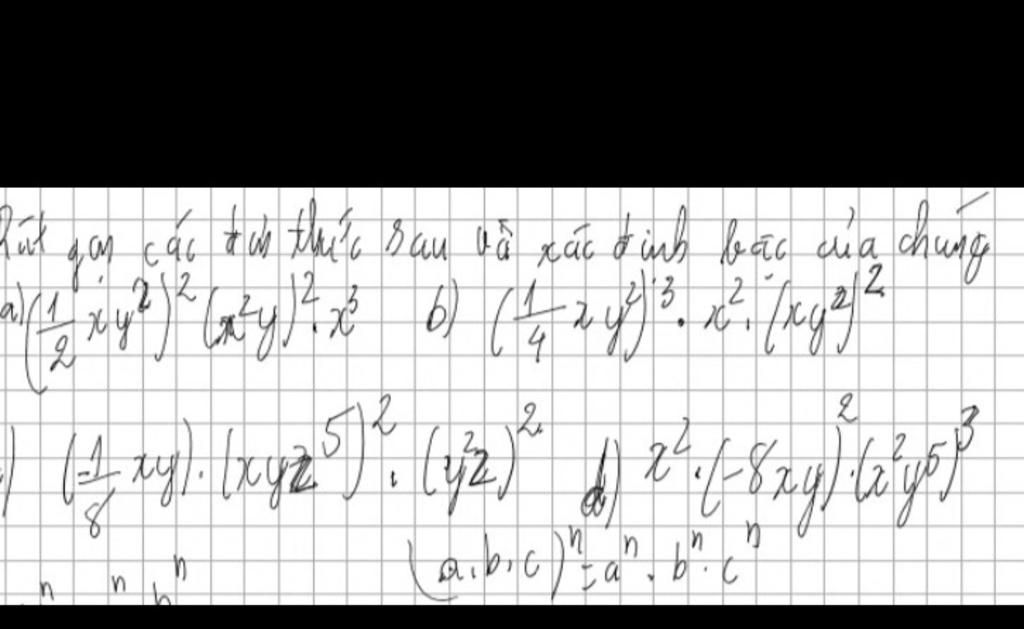 Rút gọn các đơn thức sau và xác định bậc của chúng
a) (1/2 xy²)² (x²y)² . x³ b) (1/4 xy²)³ . x² . (xy²)²
) (-1/8 xy) . (xyz⁵)² . (y²z)² d) x² . (-8xy)² . (x²y⁵)³
(a.b.c)ⁿ = aⁿ . bⁿ . cⁿ
n n bⁿ